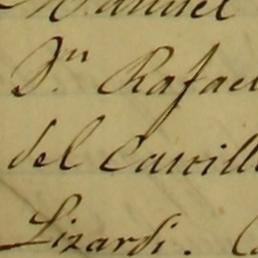 Manuel
Dn Rafael
del Castillo
Lizardi.